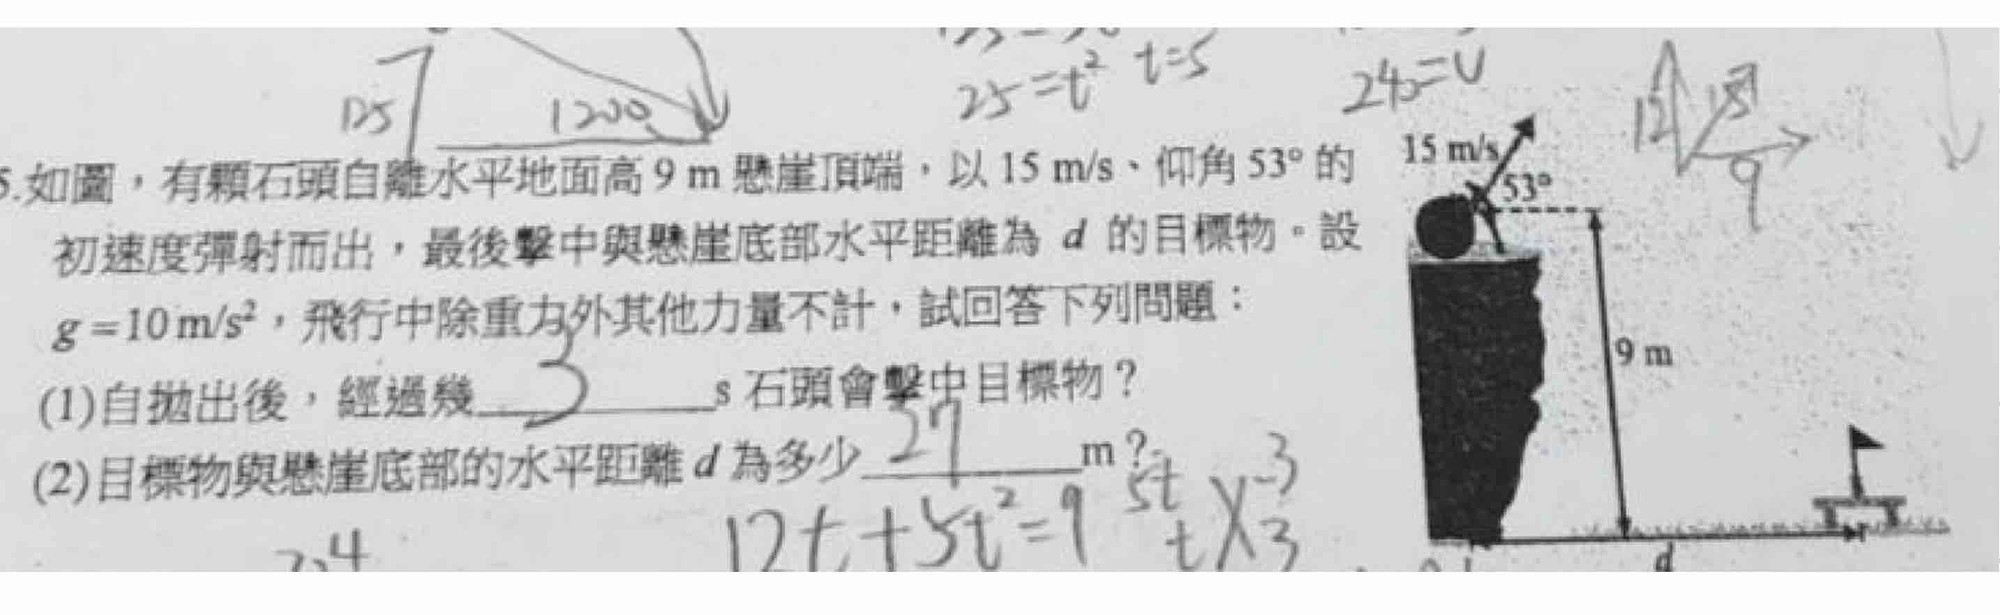 125
1200
25=t² t=5
245=v
12 15 9
5.如圖，有顆石頭自離水平地面高 9 m 懸崖頂端，以 15 m/s、仰角 53° 的
初速度彈射而出，最後擊中與懸崖底部水平距離為 d 的目標物。設
g=10 m/s²，飛行中除重力外其他力量不計，試回答下列問題：
(1)自拋出後，經過幾 3 s 石頭會擊中目標物？
(2)目標物與懸崖底部的水平距離 d 為多少 27 m？
12t+5t²=9
5t -3
t 3
15 m/s
53°
9 m
d